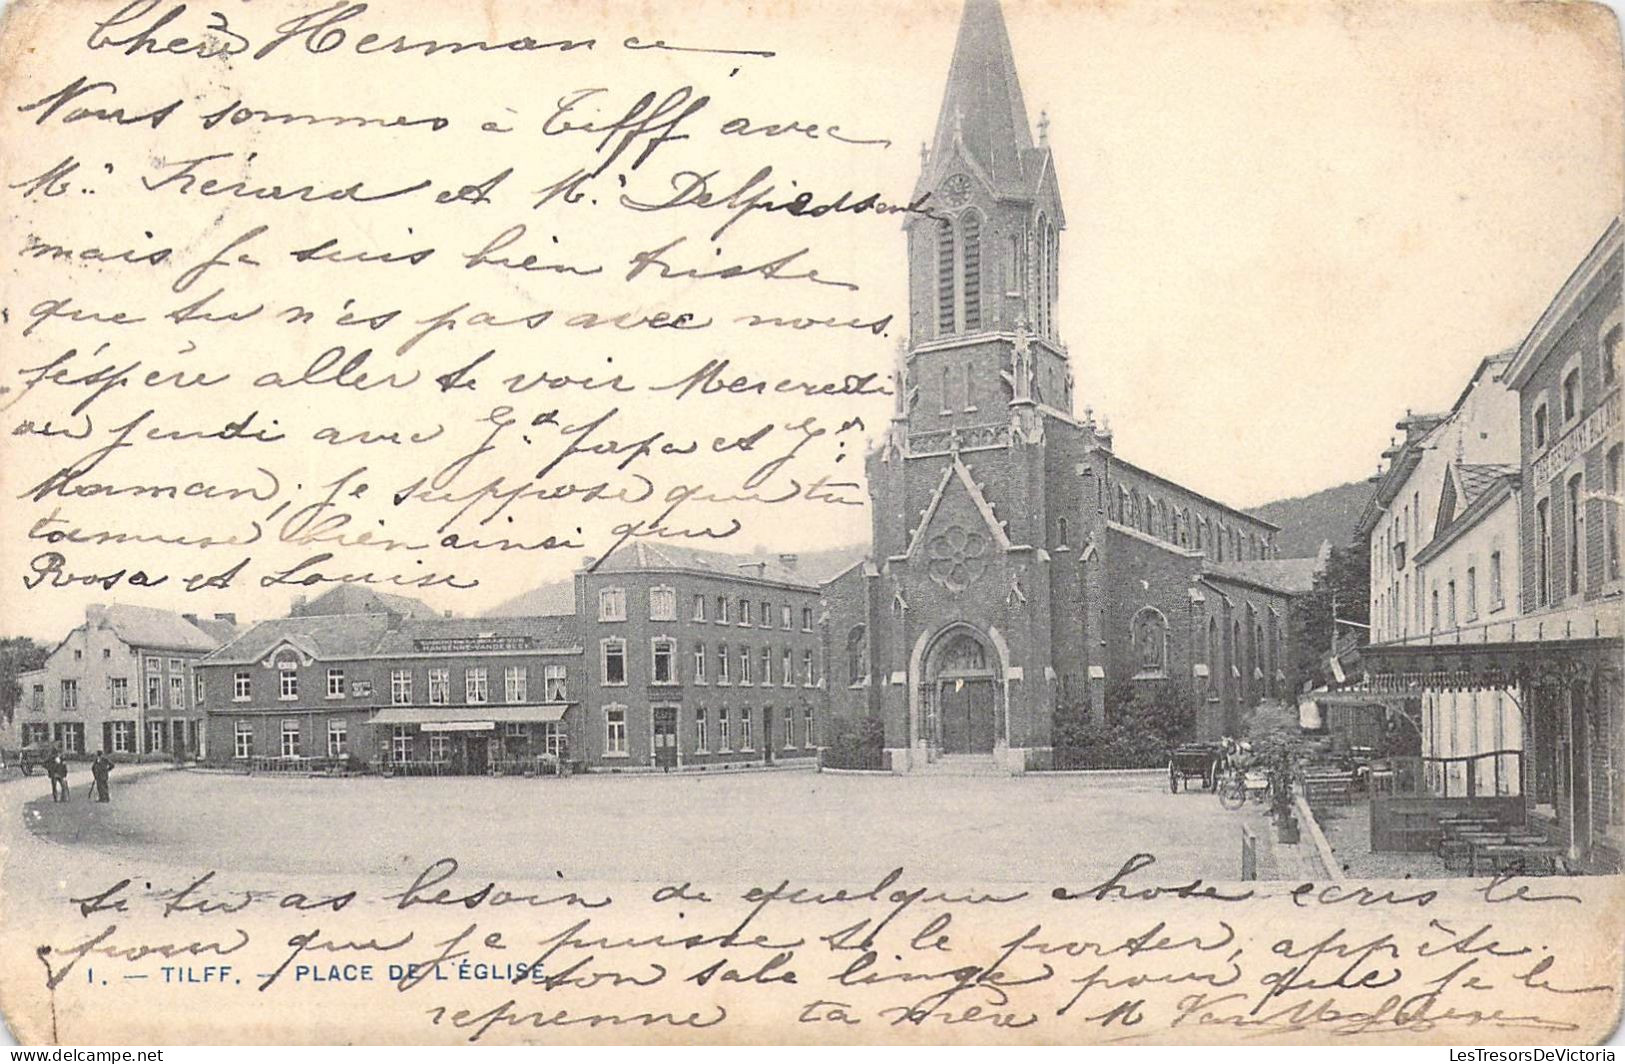 Chère Hermance
Nous sommes à Tilff avec
Mr. Frérard et M. Delpiedsente
mais je suis bien triste
que tu n'es pas avec nous.
J'éspère aller te voir Mercredi
ou jeudi avec Gd papa et Gr.
Maman; je suppose que tu
t'amuse bien ainsi que
Rosa et Louise
HANSENNE-VANDEBEEK
CAFÉ RESTAURANT
si tu as besoin de quelque chose ecris le
pour que je puisse te le porter, apprête
1. — TILFF. — PLACE DE L'ÉGLISE
ton sale linge pour que je le
reprenne ta mère M
LesTresorsDeVictoria